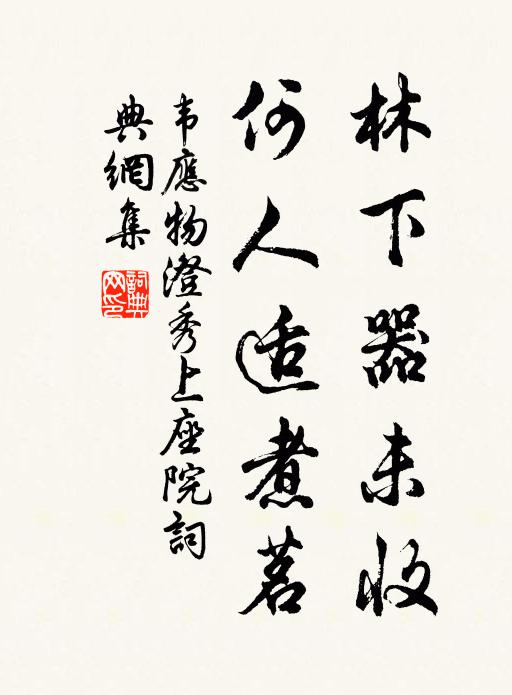 林下器未收
何人适煮茗
韦應物澄秀上座院詞
典網集
詞典网印